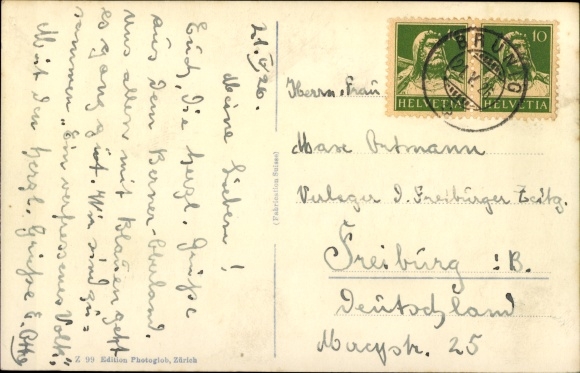 21.V.26.
Meine Lieben!
Euch, die herzl. Grüße
aus dem Berner-Oberland.
Uns allen mit Klausen geht
es ganz gut. Wir sind zu=
sammen "Ein verfressenes Volk".
Mit den herzl. Grüße E. Otto
Z 99 Edition Photoglob, Zürich
(Fabrication Suisse)
10
HELVETIA HELVETIA
BRÜNIG
Herrn u. Frau
Max Ortmann
Verleger d. Freiburger Zeitg.
Freiburg i. B.
Deutschland
35